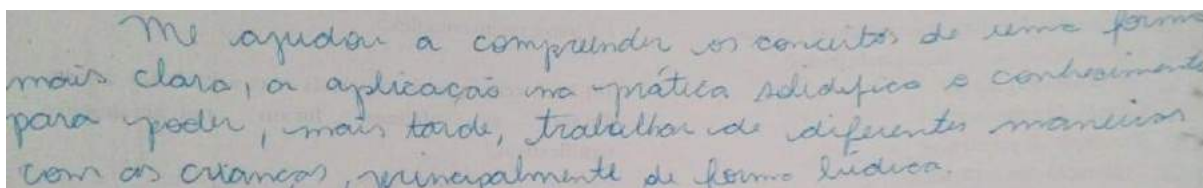 Me ajudou a compreender os conceitos de uma forma
mais clara, a aplicação na prática solidifica o conhecimento
para poder, mais tarde, trabalhar de diferentes maneiras
com as crianças, principalmente de forma lúdica.